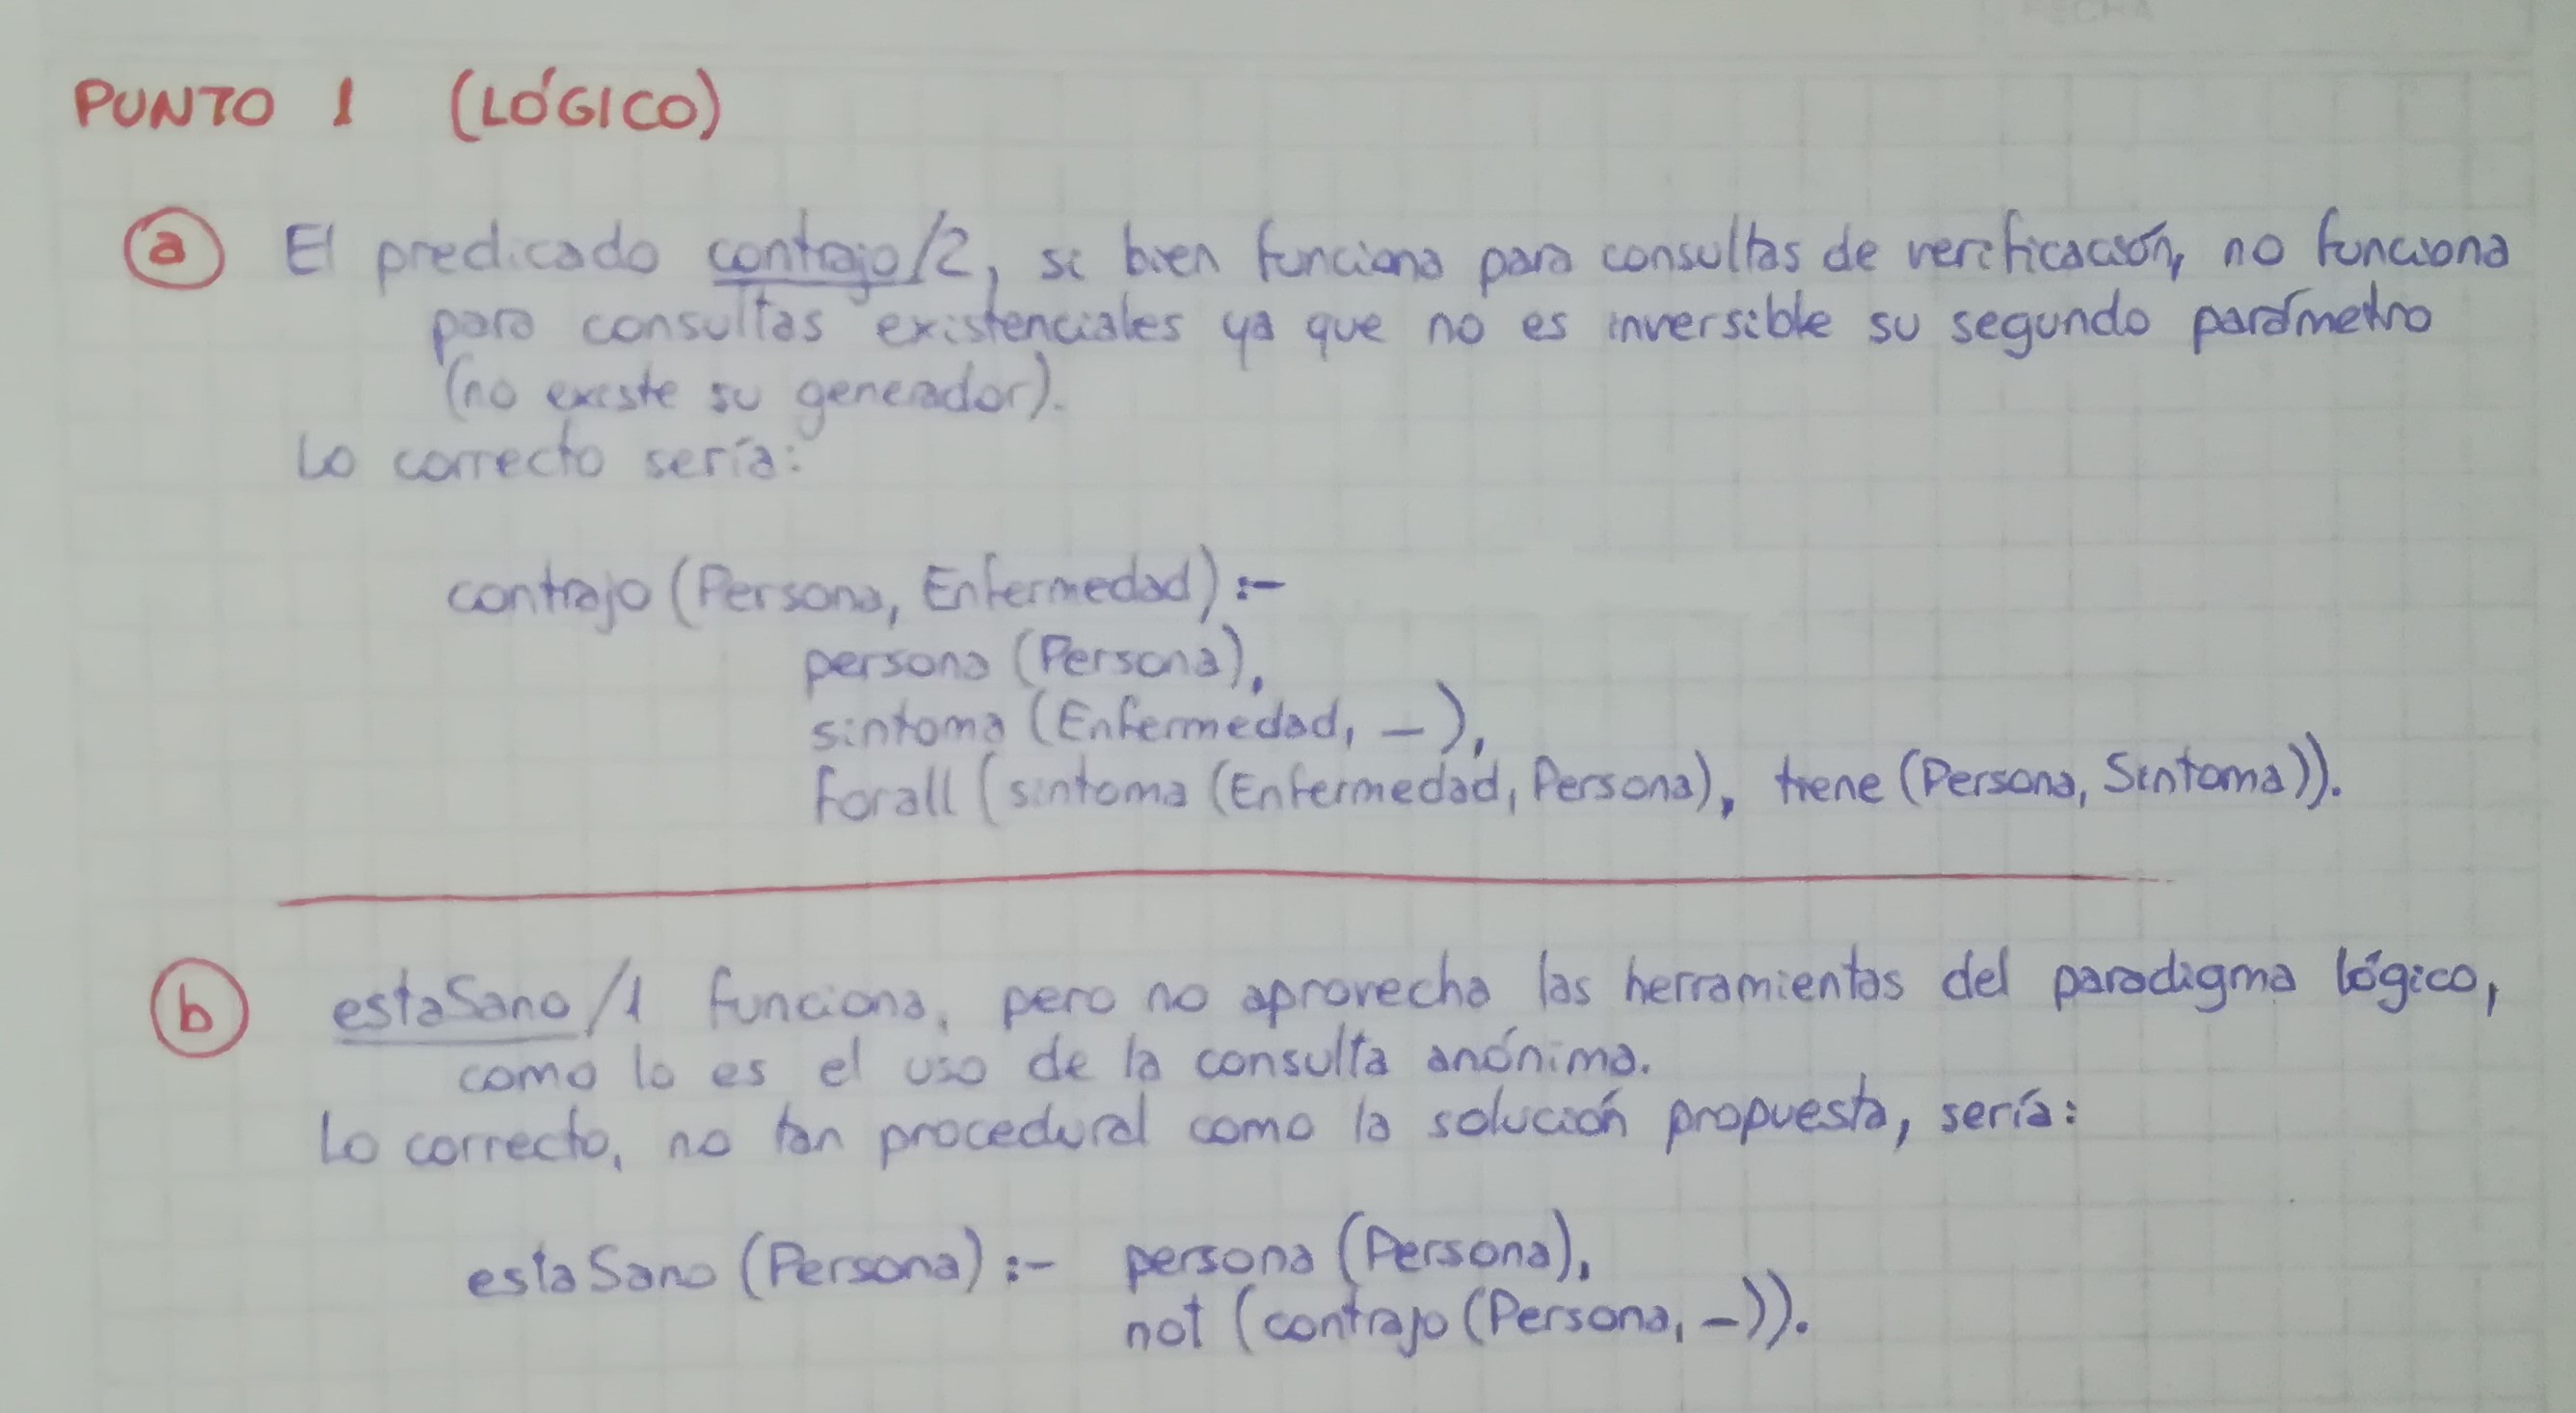 PUNTO 1 (LÓGICO)
a El predicado contrajo/2, si bien funciona para consultas de verificación, no funciona
para consultas existenciales ya que no es inversible su segundo parámetro
(no existe su generador).
Lo correcto sería:
contrajo (Persona, Enfermedad) :-
persona (Persona),
sintoma (Enfermedad, _),
forall (sintoma (Enfermedad, Persona), tiene (Persona, Sintoma)).
b estaSano/1 funciona, pero no aprovecha las herramientas del paradigma lógico,
como lo es el uso de la consulta anónima.
Lo correcto, no tan procedural como la solución propuesta, sería:
estaSano (Persona) :- persona (Persona),
not (contrajo (Persona, _)).